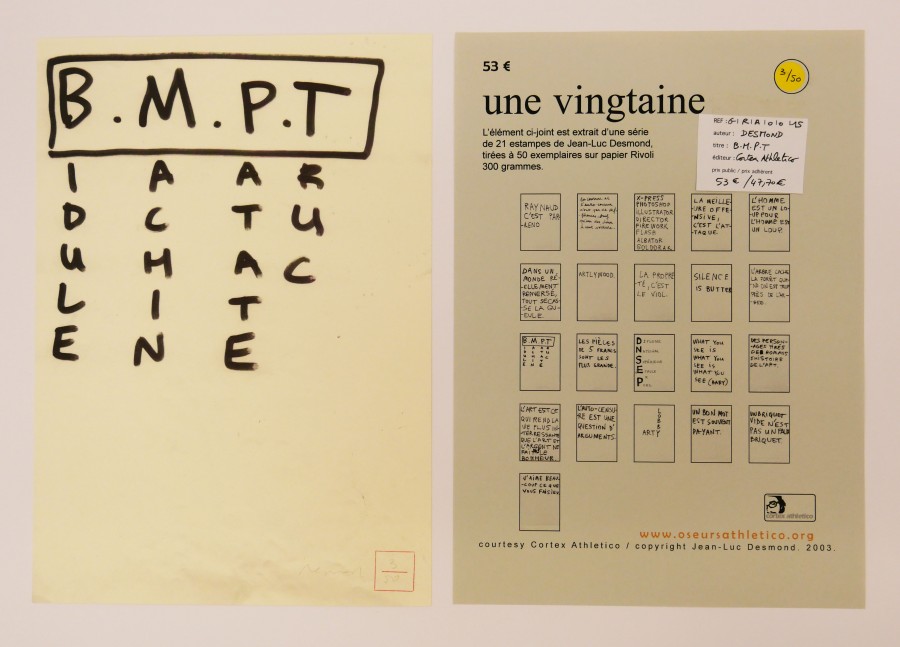 B.M.P.T
I A A R
D C T U
U H A C
L I T
E N E
3/50
53 €
3/50
une vingtaine
L'élément ci-joint est extrait d'une série
de 21 estampes de Jean-Luc Desmond,
tirées à 50 exemplaires sur papier Rivoli
300 grammes.
REF:
auteur: DESMOND
titre: B.M.P.T
éditeur: Cortex Athletico
prix public / prix adhérent
53 € / 47,70 €
RAYNAUD
C'EST PAR
-RENO
X-PRESS
PHOTOSHOP
ILLUSTRATOR
DIRECTOR
FIREWORK
FLASH
ALBATOR
GOLDORAK
LA MEILLE-
URE OFFE-
NSIVE,
C'EST L'AT-
TAQUE.
L'HOMME
EST UN LO-
UP POUR
L'HOMME EST
UN LOUP.
DANS UN
MONDE RÉ-
ELLEMENT
RENVERSÉ,
TOUT SE CAS-
SE LA GU-
EULE.
ARTLYWOOD.
LA PROPRIÉ-
TÉ, C'EST
LE VIOL.
SILENCE
IS BUTTER
L'ARBRE CACHE
LA FORÊT QUA-
ND ON EST TROP
PRÈS DE L'AR-
BRE.
B.M.P.T
I A A R
D C T U
U H A C
L I T
E N E
LES PIÈCES
DE 5 FRANCS
SONT LES
PLUS GRANDE.
D
N
S
E
P
WHAT YOU
SEE IS
WHAT YOU
SEE IS
WHAT YOU
SEE (BABY)
DES PERSON-
-AGES TIRÉS
DES ROMANS
D'HISTOIRE
DE L'ART.
L'ART EST CE
QUI REND LA
VIE PLUS IN-
TERRESSANTE
QUE L'ART ET
L'ARGENT NE
FAIT LE
BONHEUR.
L'AUTO-CENSU-
RE EST UNE
QUESTION D'
ARGUMENTS.
L
O
B
B
ARTY
UN BON MOT
EST SOUVENT
PAYANT.
UN BRIQUET
VIDE N'EST
PAS UN VRAI
BRIQUET.
J'AIME BEAU-
-COUP CE QUE
VOUS FAISIEZ
cortex athletico
www.oseursathletico.org
courtesy Cortex Athletico / copyright Jean-Luc Desmond. 2003.